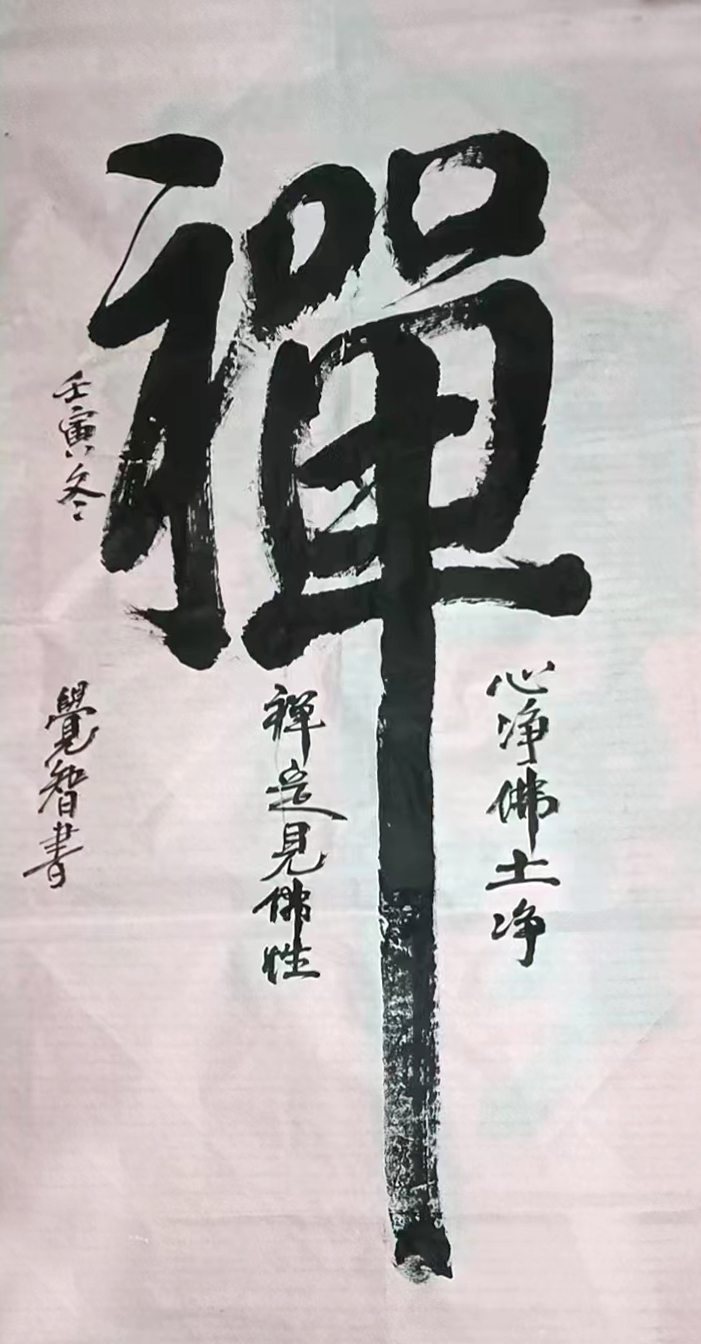 禪
心净佛土净
禅定見佛性
壬寅冬
覺智書